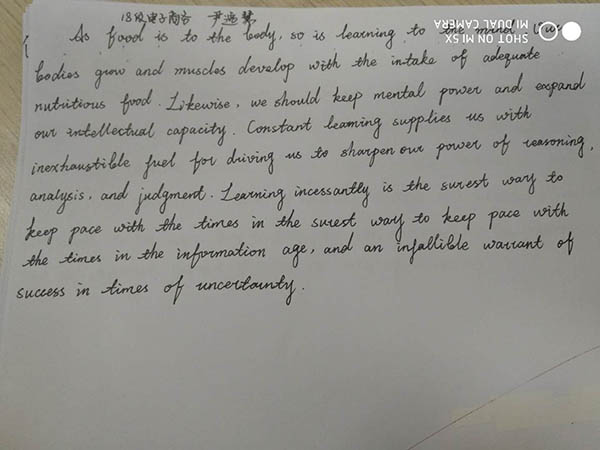 18级电子商务 尹
As food is to the body, so is learning to the mind. Our
bodies grow and muscles develop with the intake of adequate
nutritious food. Likewise, we should keep mental power and expand
our intellectual capacity. Constant learning supplies us with
inexhaustible fuel for driving us to sharpen our power of reasoning,
analysis, and judgment. Learning incessantly is the surest way to
keep pace with the times in the surest way to keep pace with
the times in the information age, and an infallible warrant of
success in times of uncertainty.
SHOT ON MI 5X
MI DUAL CAMERA